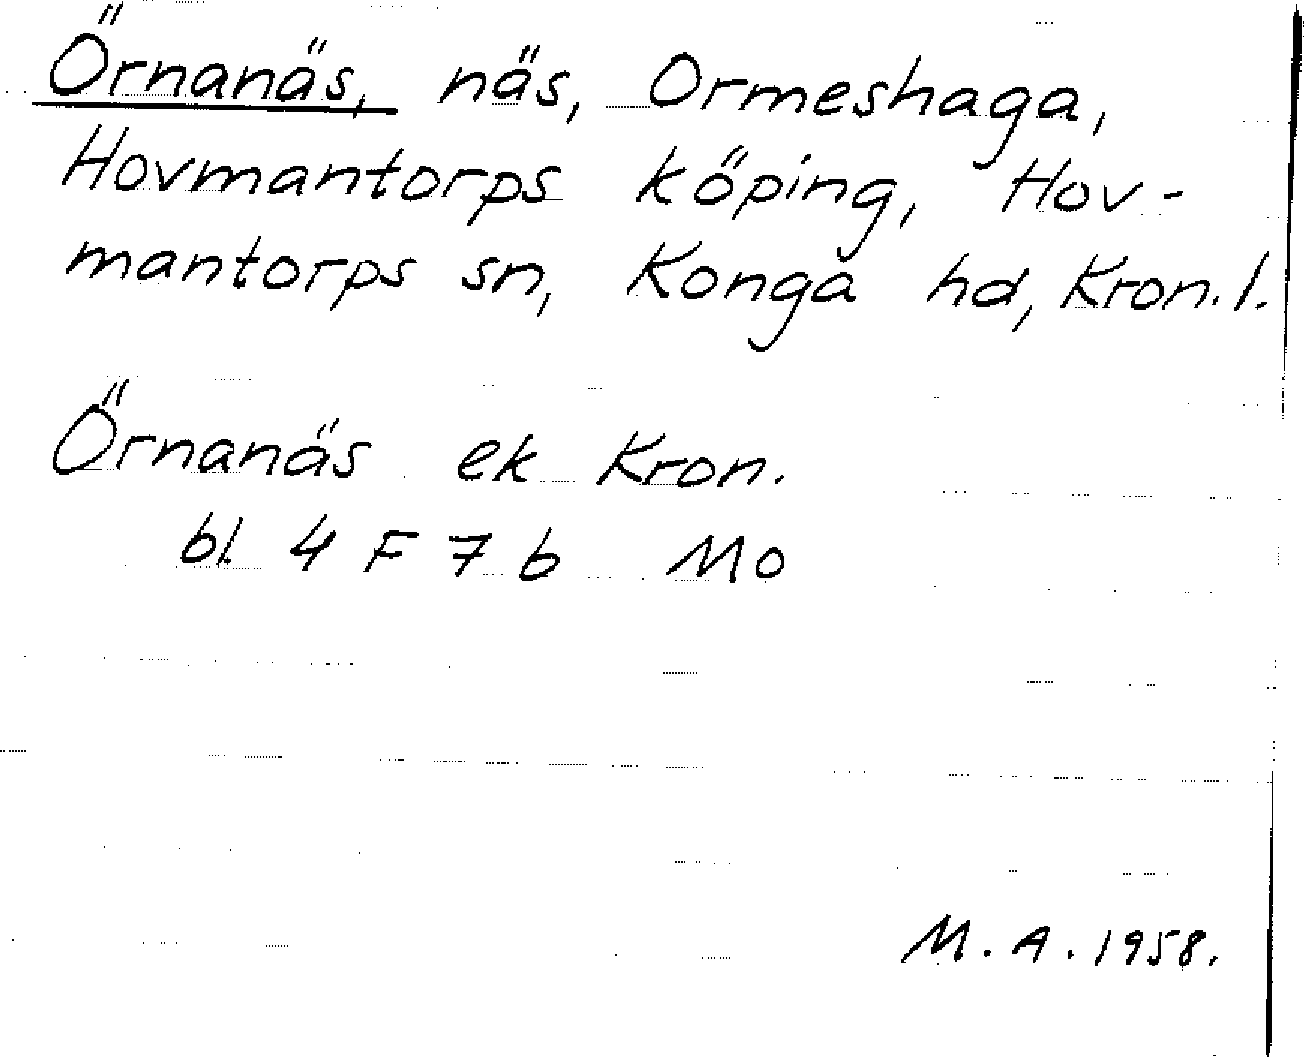 Örnanäs, näs, Ormeshaga,
Hovmantorps köping, Hov-
mantorps sn, Konga hd, Kron. l.
Örnanäs ek Kron.
bl. 4 F 7 b Mo
M. A. 1958.